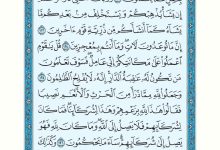 إِن يَشَأْ يُذْهِبْكُمْ وَيَسْتَخْلِفْ مِنۢ بَعْدِكُم مَّا
يَشَآءُ كَمَآ أَنشَأَكُم مِّن ذُرِّيَّةِ قَوْمٍ ءَاخَرِينَ
إِنَّ مَا تُوعَدُونَ لَءَاتٍ وَمَآ أَنتُم بِمُعْجِزِينَ قُلْ يَٰقَوْمِ
ٱعْمَلُوا۟ عَلَىٰ مَكَانَتِكُمْ إِنِّى عَامِلٌ فَسَوْفَ تَعْلَمُونَ
مَن تَكُونُ لَهُۥ عَٰقِبَةُ ٱلدَّارِ إِنَّهُۥ لَا يُفْلِحُ ٱلظَّٰلِمُونَ
وَجَعَلُوا۟ لِلَّهِ مِمَّا ذَرَأَ مِنَ ٱلْحَرْثِ وَٱلْأَنْعَٰمِ نَصِيبًا
فَقَالُوا۟ هَٰذَا لِلَّهِ بِزَعْمِهِمْ وَهَٰذَا لِشُرَكَآئِنَا فَمَا كَانَ
لِشُرَكَآئِهِمْ فَلَا يَصِلُ إِلَى ٱللَّهِ وَمَا كَانَ لِلَّهِ فَهُوَ
يَصِلُ إِلَىٰ شُرَكَآئِهِمْ سَآءَ مَا يَحْكُمُونَ